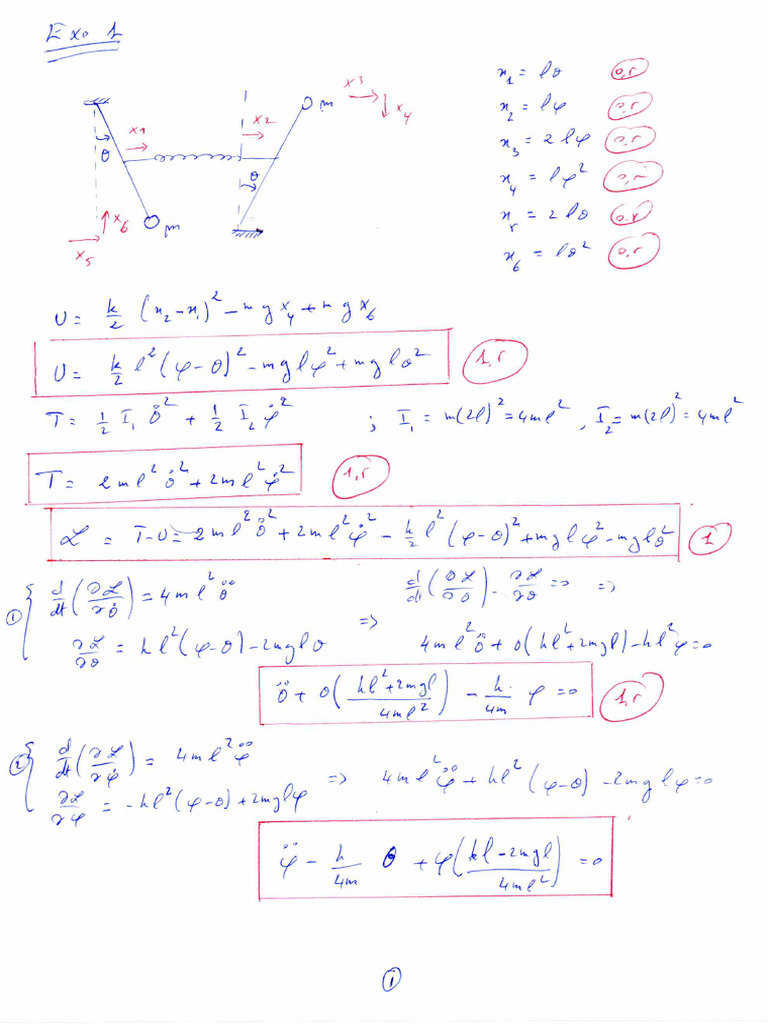 Exo 1
x₁ = lθ 0,5
x₂ = lφ 0,5
x₃ = 2lφ 0,5
x₄ = lφ² 0,5
x₅ = 2lθ 0,5
x₆ = lθ² 0,5
x1 x2 x3 x4 m
θ θ
x5 x6 m
U = k/2 (x₂-x₁)² - mgx₄ + mgx₆
U = k/2 l²(φ-θ)² - mglφ² + mglθ² 1,5
T = 1/2 I₁ θ̇² + 1/2 I₂ φ̇² ; I₁ = m(2l)² = 4ml², I₂ = m(2l)² = 4ml²
T = 2ml²θ̇² + 2ml²φ̇² 1,5
L = T-U = 2ml²θ̇² + 2ml²φ̇² - k/2 l²(φ-θ)² + mglφ² - mglθ² 1
① { d/dt(∂L/∂θ̇) = 4ml²θ̈ d/dt(∂L/∂θ̇) - ∂L/∂θ = 0 =>
∂L/∂θ = kl²(φ-θ) - 2mglθ => 4ml²θ̈ + θ(kl²+2mgl) - kl²φ = 0
θ̈ + θ((kl²+2mgl)/4ml²) - k/4m φ = 0 1,5
② { d/dt(∂L/∂φ̇) = 4ml²φ̈ => 4ml²φ̈ + kl²(φ-θ) - 2mglφ = 0
∂L/∂φ = -kl²(φ-θ) + 2mglφ
φ̈ - k/4m θ + φ((kl-2mgl)/4ml²) = 0
①